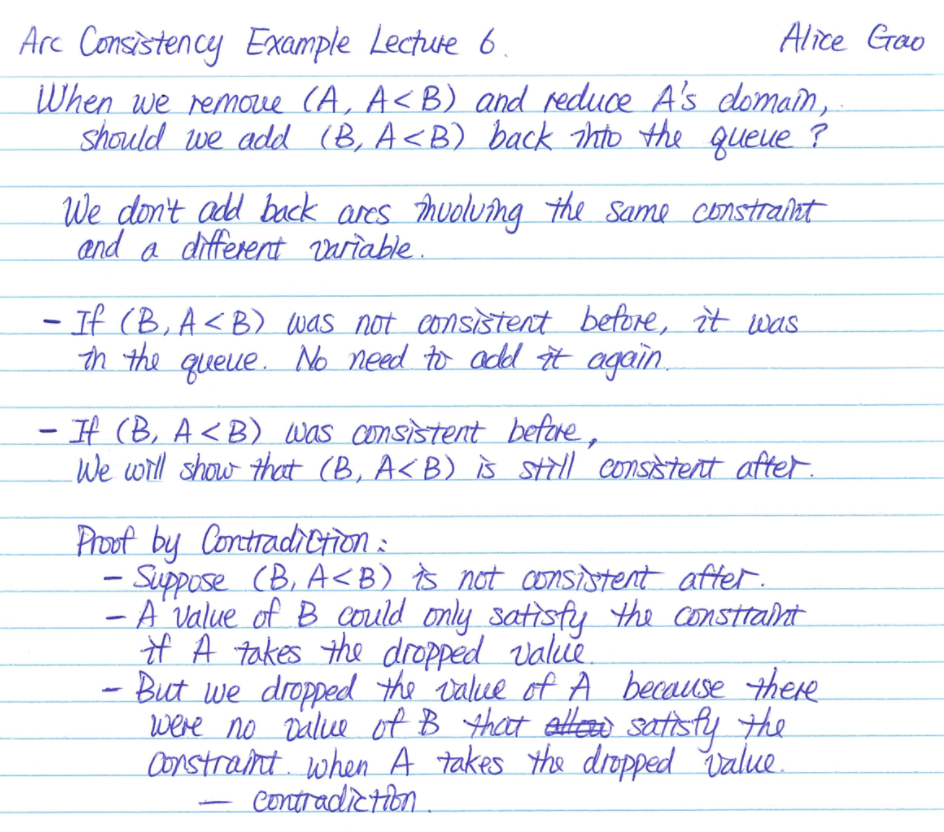 Arc Consistency Example Lecture 6. Alice Gao
When we remove (A, A<B) and reduce A's domain,
should we add (B, A<B) back into the queue?
We don't add back arcs involving the same constraint
and a different variable.
- If (B, A<B) was not consistent before, it was
in the queue. No need to add it again.
- If (B, A<B) was consistent before,
We will show that (B, A<B) is still consistent after.
Proof by Contradiction:
- Suppose (B, A<B) is not consistent after.
- A value of B could only satisfy the constraint
if A takes the dropped value.
- But we dropped the value of A because there
were no value of B that allow satisfy the
constraint. when A takes the dropped value.
- contradiction.